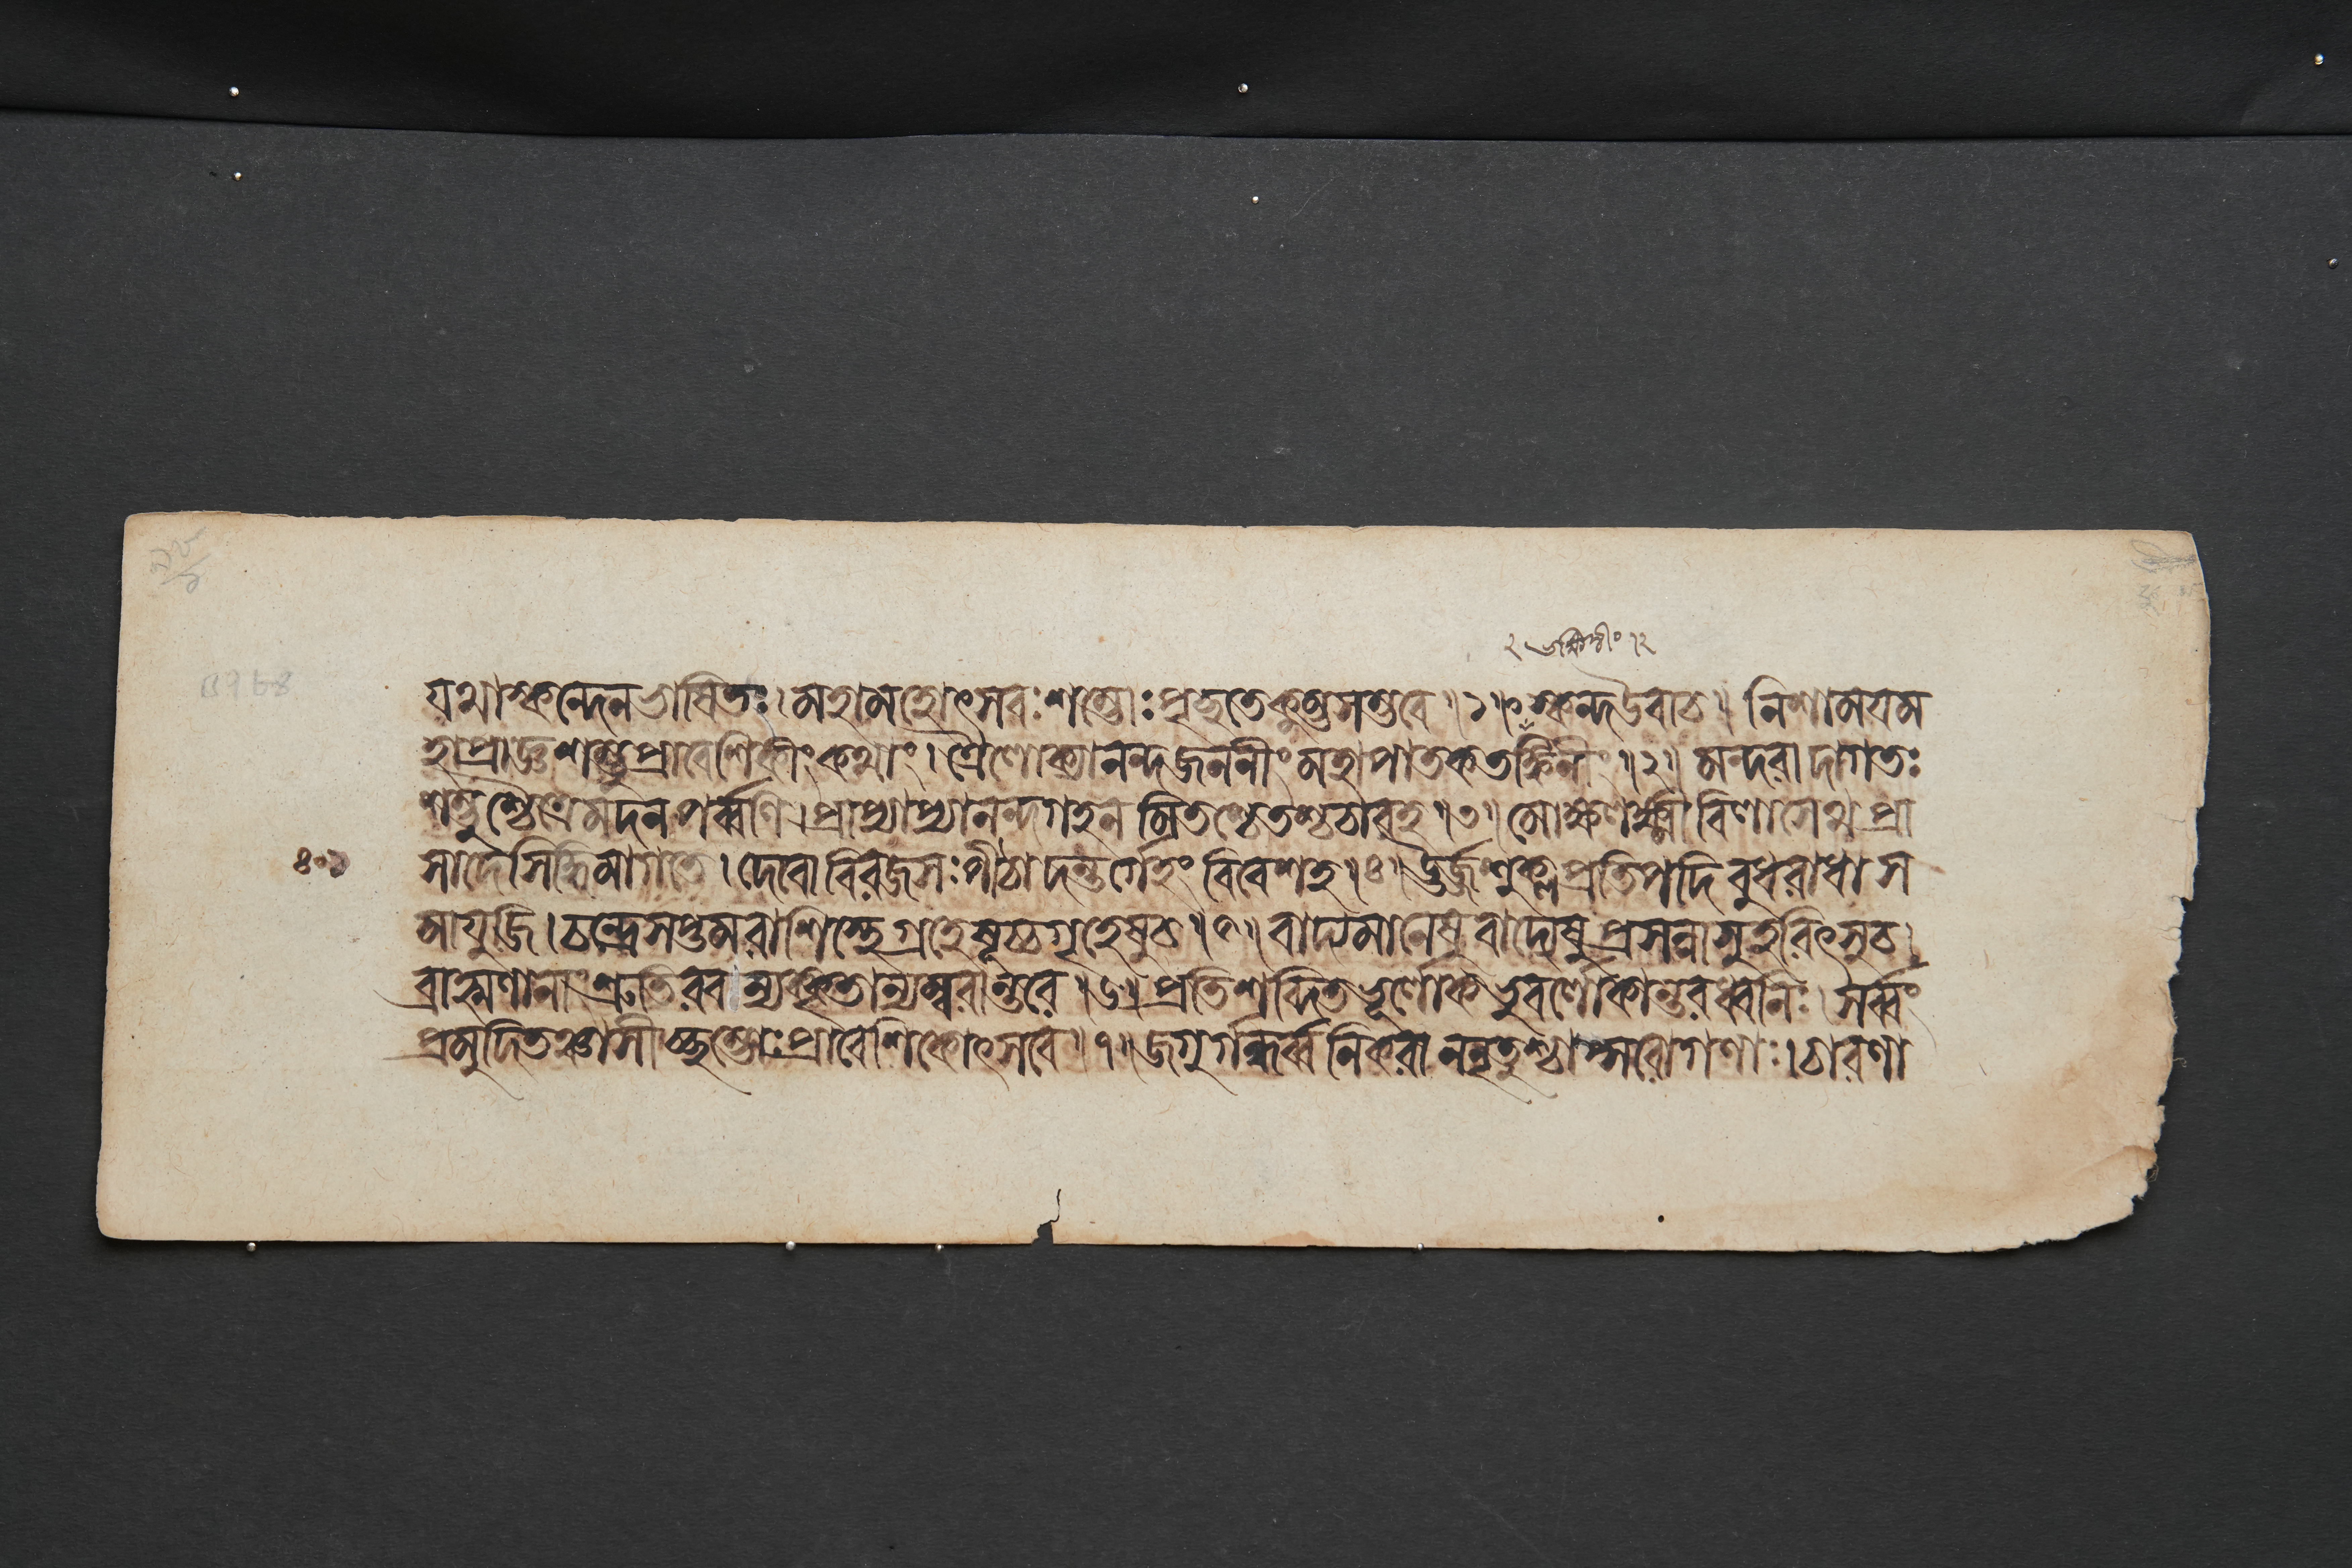 যথাস্কন্দেনভাষিতঃ।মহামহোৎসবঃশম্ভোঃপৃচ্ছতেকুম্ভসম্ভবে॥১॥স্কন্দউবাচ॥নিশাময়ম
হাপ্রাজ্ঞশম্ভুপ্রাবেশিকীংকথাং।ত্রৈলোক্যানন্দজননীংমহাপাতকতর্জ্জিনীং॥২॥মন্দরাদাগতঃ
শম্ভুশ্চৈত্রেমদনপর্ব্বণি।প্রাপ্যাপ্যানন্দগহনমিতশ্চেতশ্চচারহ॥৩॥মোক্ষলক্ষ্মীবিলাসেথপ্রা
৪০১ সাদেসিদ্ধিমাগতে।দেবোবিরজসঃপীঠাদন্তর্গেহংবিবেশহ॥৪॥ঊর্জশুক্লপ্রতিপদিবুধরাধাস
মাযুজি।চন্দ্রেসপ্তমরাশিস্থেগ্রহেষূচ্চগৃহেষুচ॥৫॥বাদ্যমানেষুবাদ্যেষুপ্রসন্নাসুহরিৎসুচ।
ব্রাহ্মণানাংশ্রুতিরবন্যক্কৃতান্যস্বরান্তরে॥৬॥প্রতিশব্দিতভূর্লোকভুবর্লোকান্তরধ্বনিঃ।সর্ব্বং
প্রমুদিতঞ্চাসীচ্ছম্ভোঃপ্রাবেশিকোৎসবে॥৭॥জগুর্গন্ধর্ব্বনিকরাননৃতুশ্চাপ্সরোগণাঃ।চারণা